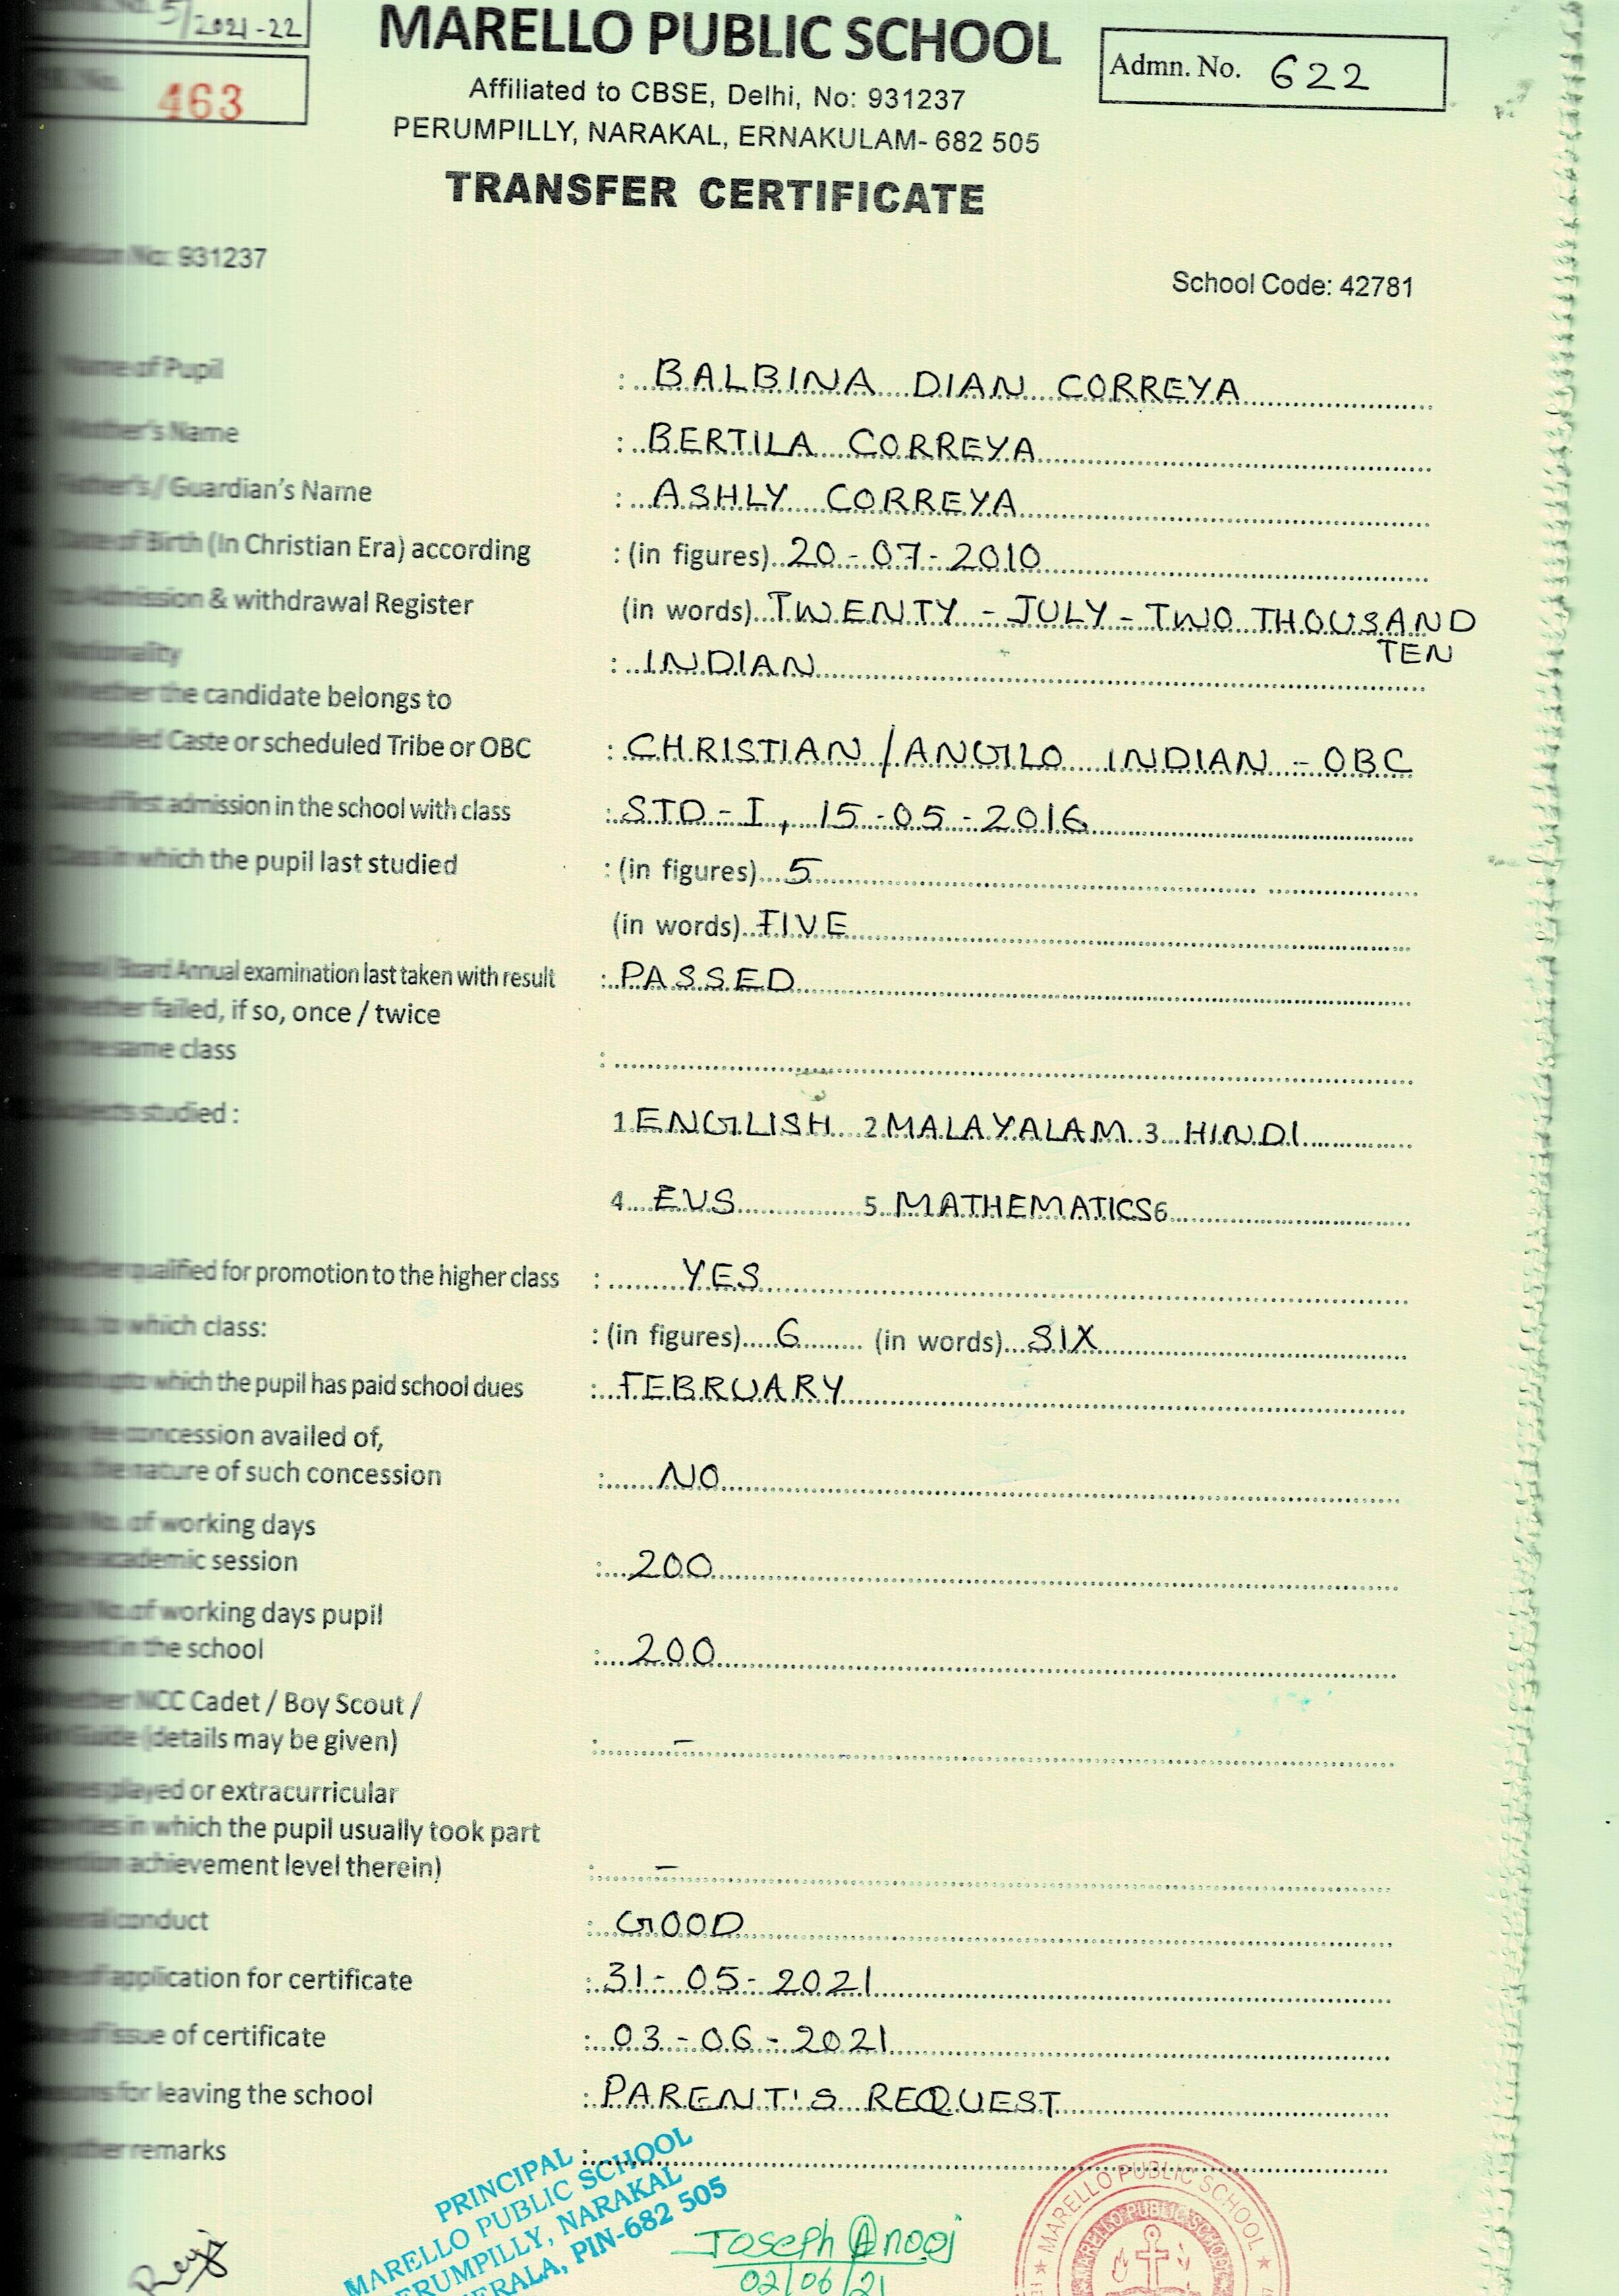 5/2021-22
MARELLO PUBLIC SCHOOL
Admn. No. 622
No. 463
Affiliated to CBSE, Delhi, No: 931237
PERUMPILLY, NARAKAL, ERNAKULAM- 682 505
TRANSFER CERTIFICATE
No: 931237
School Code: 42781
Name of Pupil : BALBINA DIAN CORREYA
Mother's Name : BERTILA CORREYA
Father's / Guardian's Name : ASHLY CORREYA
Date of Birth (In Christian Era) according : (in figures) 20-07-2010
Admission & withdrawal Register (in words) TWENTY - JULY - TWO THOUSAND
TEN
Nationality : INDIAN
Whether the candidate belongs to
Scheduled Caste or scheduled Tribe or OBC : CHRISTIAN / ANGLO INDIAN - OBC
of first admission in the school with class : STD - I, 15-05-2016
in which the pupil last studied : (in figures) 5
(in words) FIVE
Board Annual examination last taken with result : PASSED
Whether failed, if so, once / twice
the same class :
Subjects studied : 1 ENGLISH 2 MALAYALAM 3 HINDI
4 EVS 5 MATHEMATICS 6
Whether qualified for promotion to the higher class : YES
to which class: : (in figures) 6 (in words) SIX
which the pupil has paid school dues : FEBRUARY
concession availed of,
the nature of such concession : NO
No. of working days
academic session : 200
No. of working days pupil
in the school : 200
Whether NCC Cadet / Boy Scout /
Guide (details may be given) : –
played or extracurricular
activities in which the pupil usually took part
achievement level therein) : –
General conduct : GOOD
of application for certificate : 31-05-2021
of issue of certificate : 03-06-2021
for leaving the school : PARENT'S REQUEST
other remarks :
PRINCIPAL
MARELLO PUBLIC SCHOOL
PERUMPILLY, NARAKAL
KERALA, PIN-682 505
Joseph Anooj
02/06/21
MARELLO PUBLIC SCHOOL
MARELLO PUBLIC SCHOOL